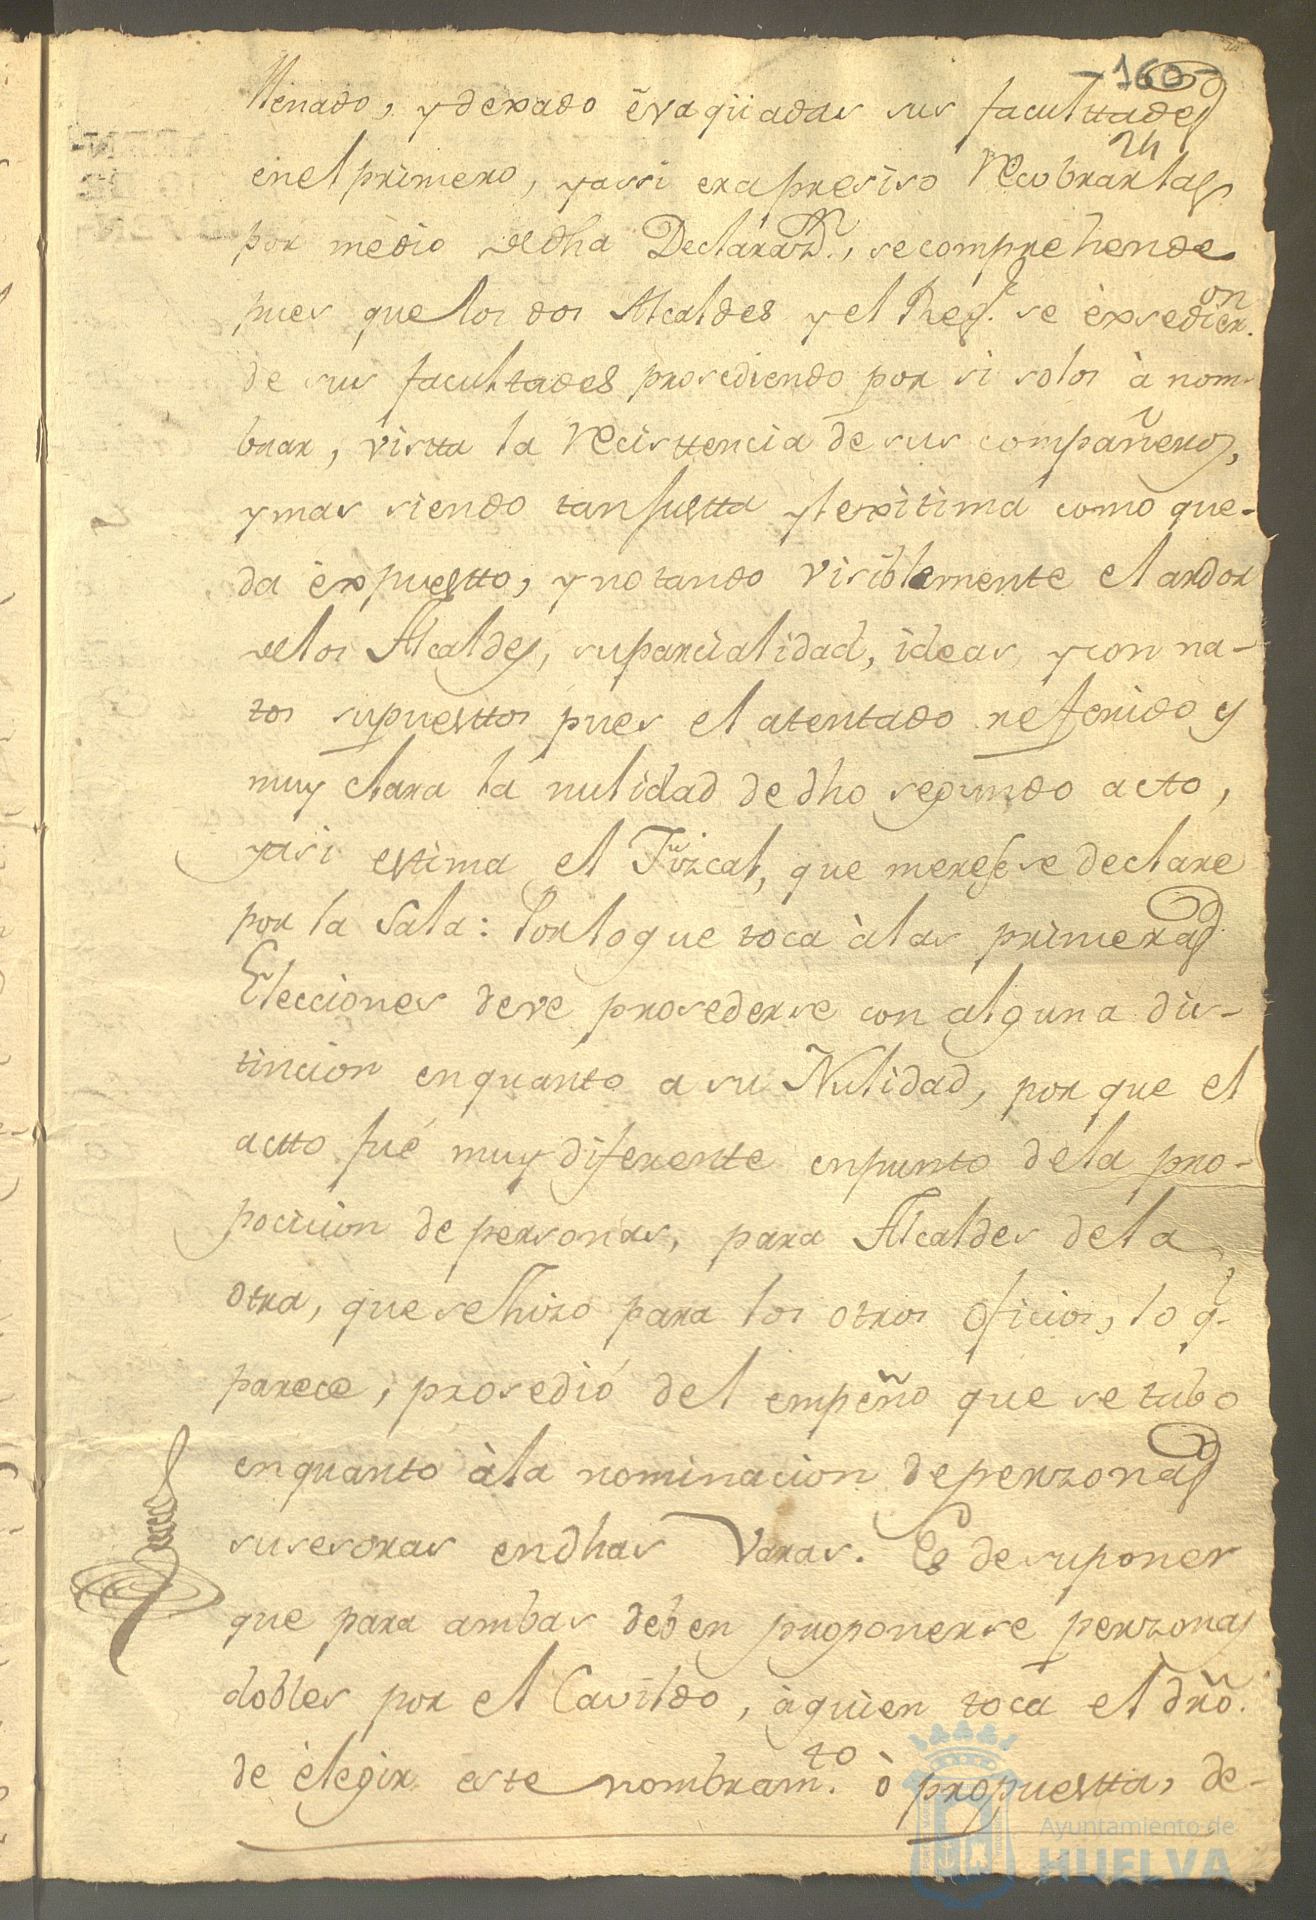 -160-
24
llenado, y dexado èvaqüadas sus faculttades
en el primero, y assi era presiso recobrarlas
por mèdio de dha Declarazn., se comprehende
pues que los dos Alcaldes y el Regr. se èxsedieron
de sus facultades prosediendo por si solos à nom-
brar, vistta la recisttencia de sus compañeros,
y mas siendo tan justta y lexìtima como que-
da èxpuestto, y notando visiblemente el ardor
de los Alcaldes, su parcialidad, ideas, y conna-
tos supuesttos pues el atentado referido y
muy clara la nulidad de dho segundo acto,
y asi estima el Fiszcal, que merese se declare
por la Sala: Por lo que toca à las primeras
Elecciones deve prosederse con alguna dis-
tincion en quanto a su Nulidad, por que el
actto fué muy diferente en punto de la pro-
pocicion de personas, para Alcaldes de la
otra, que se hizo para los otros oficios, lo q.
parece, prosedió del empeño que se tubo
en quanto à la nominacion de perszonas
susesoras en dhas Varas. Es de suponer
que para ambas deben proponerse perszonas
dobles por el Cavildo, à quien toca el dro.
de èlegir este nombramto. ò propuestta, de-
Ayuntamiento de
HUELVA